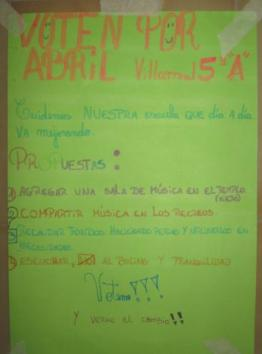 VOTEN POR
ABRIL Villarreal 5 "A"
Cuidemos NUESTRA escuela que día a día
va mejorando.
PROPUESTAS:
AGREGAR UNA SALA DE MÚSICA EN EL
COMPARTIR MÚSICA EN LOS RECREOS.
RECAUDAR FONDOS HACIENDO Y EN
NECESIDADES.
ESCUCHAR, NO AL BULLING Y TRANQUILIDAD
Voten!!!
Y VERÁS EL CAMBIO!!